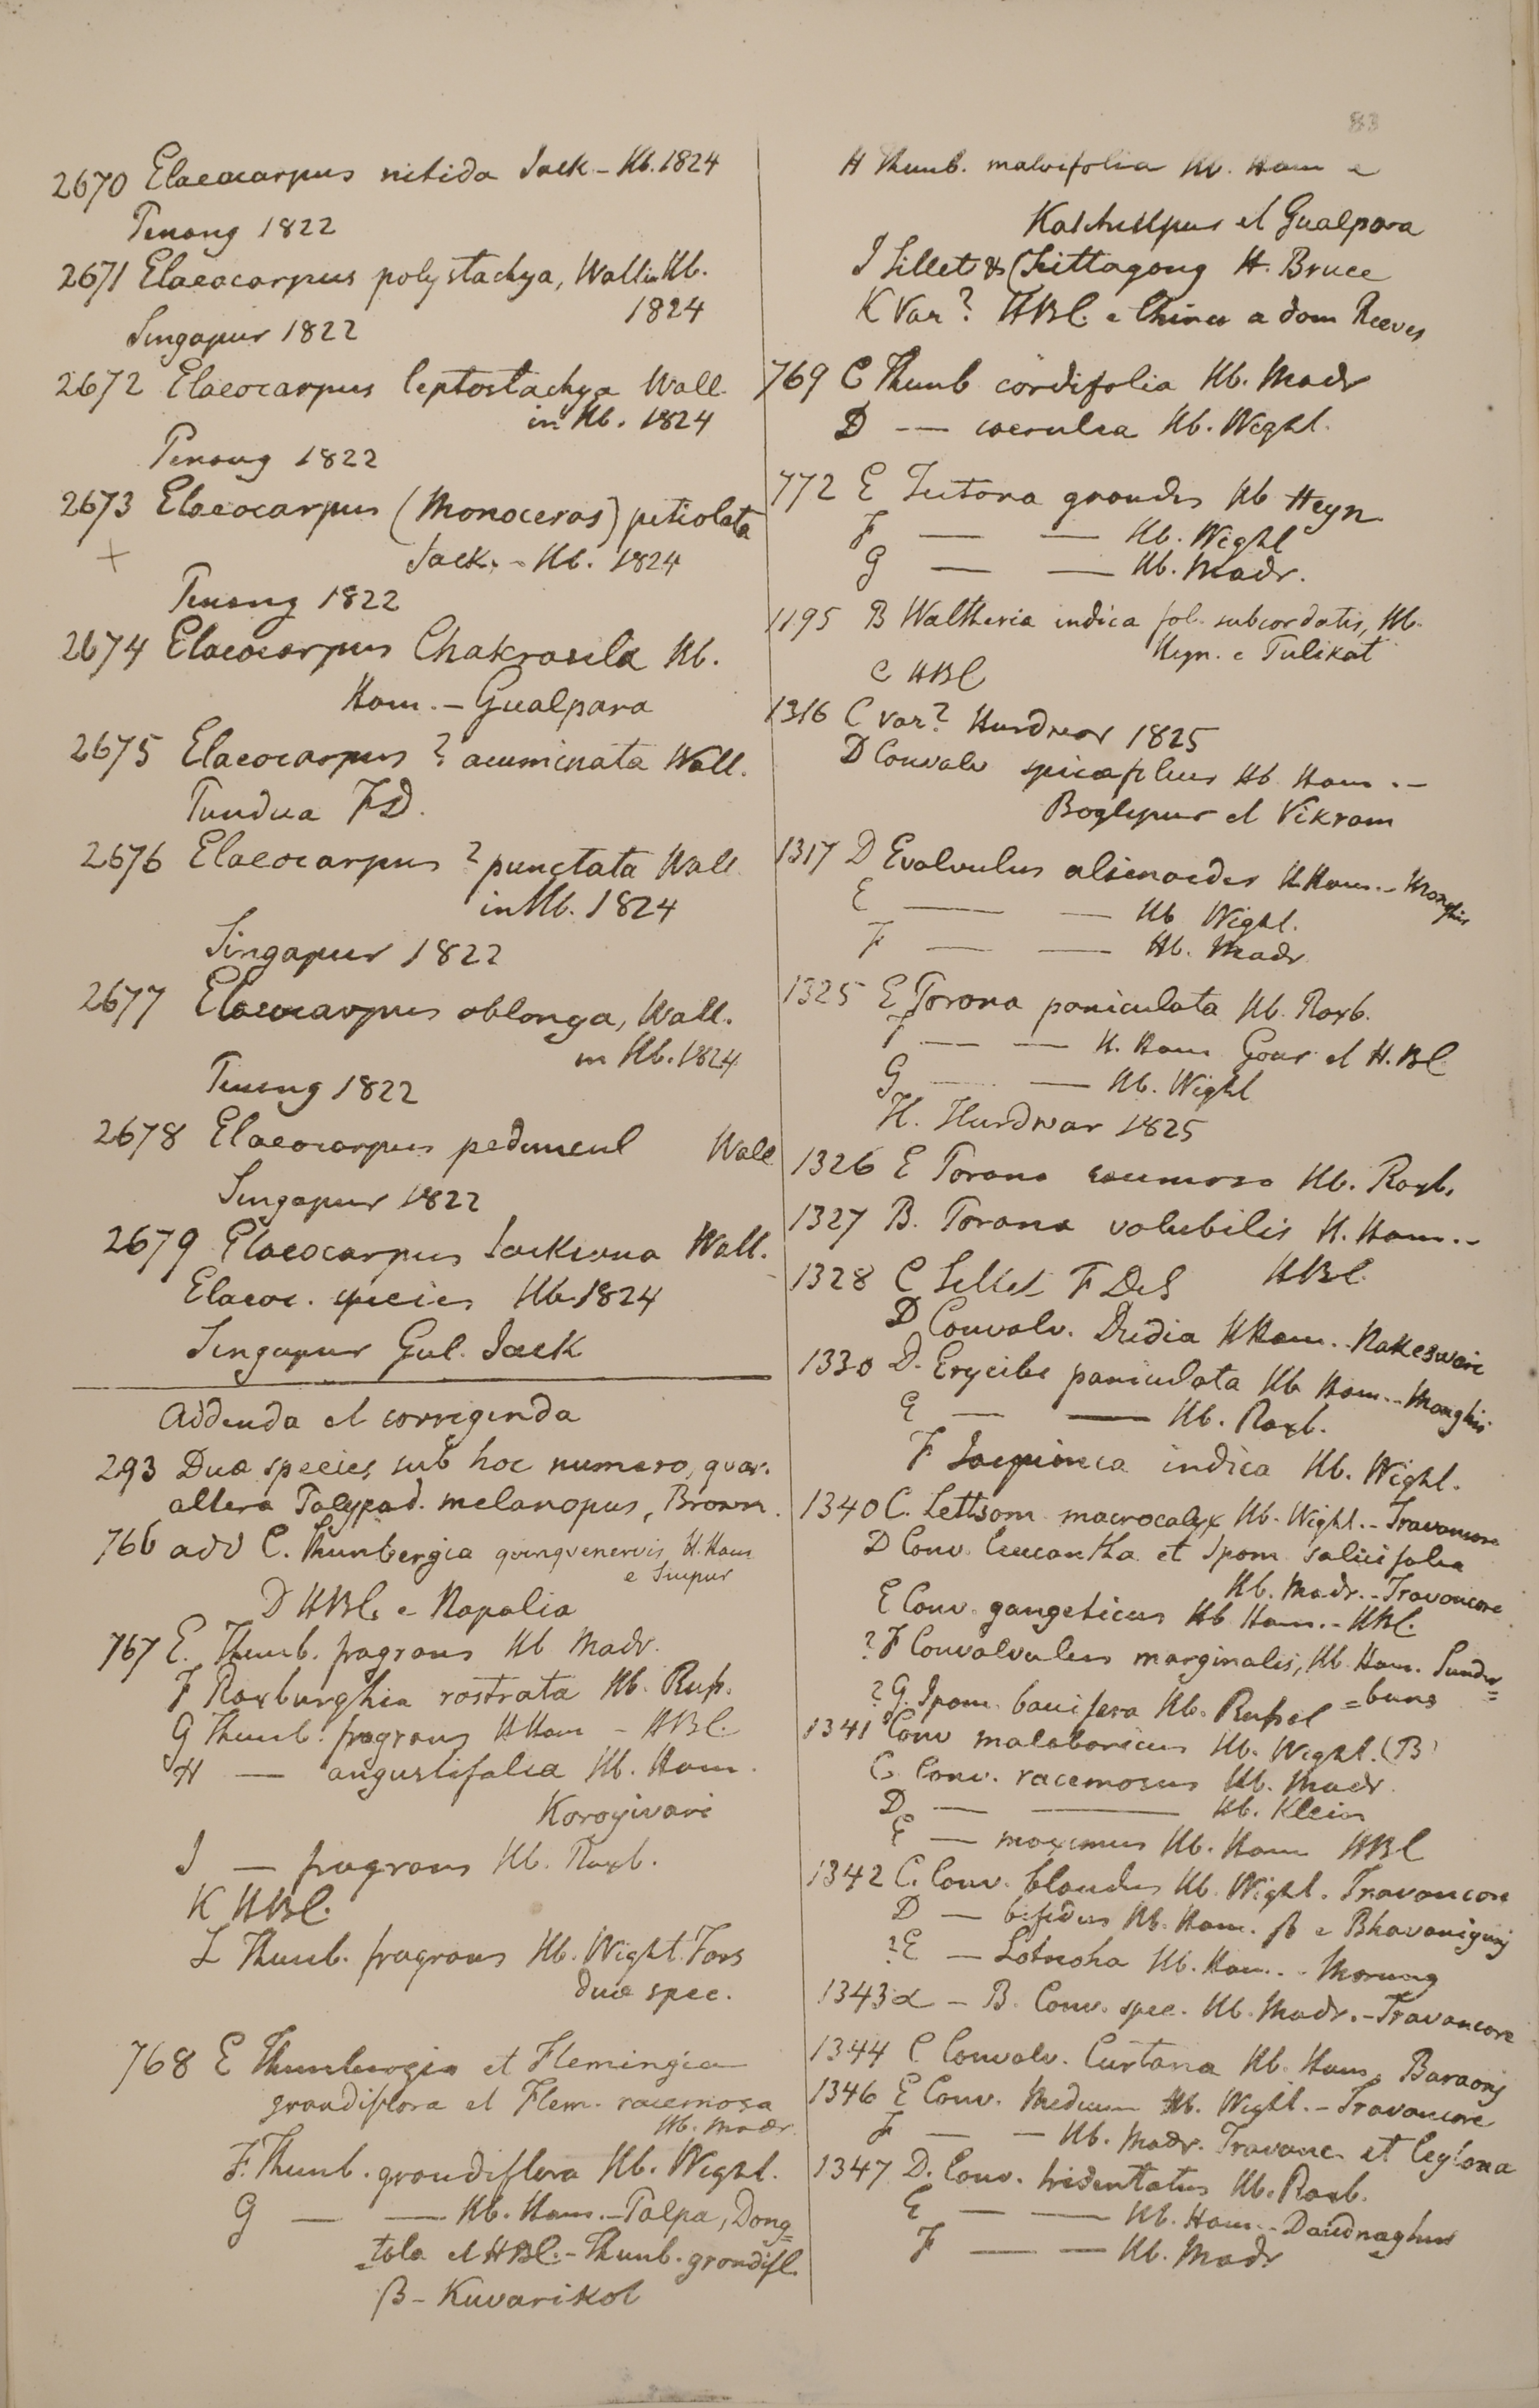 83
2670 Elaeocarpus nitida Jack - Hb. 1824
Penang 1822
2671 Elaeocarpus polystachya, Wall in Hb.
1824
Singapur 1822
2672 Elaeocarpus leptostachya Wall.
in Hb. 1824
Penang 1822
2673 Elaeocarpus (Monoceras) petiolata
+ Jack. - Hb. 1824
Penang 1822
2674 Elaeocarpus Chakrasila Hb.
Ham. - Gualpara
2675 Elaeocarpus ? acuminata Wall.
Tundua FD.
2676 Elaeocarpus ? punctata Wall
in Hb. 1824
Singapur 1822
2677 Elaeocarpus oblonga, Wall.
in Hb. 1824
Penang 1822
2678 Elaeocarpus peduncul Wall
Singapur 1822
2679 Elaeocarpus Jackiana Wall.
Elaeoc. species Hb. 1824
Singapur Gul. Jack
Addenda et corrigenda
293 Duae species sub hoc numero, quar.
altera Polypod. melanopus, Brown.
766 add C. Thunbergia quinquenervis H. Ham
e Suepur
D HBC. e Napalia
767 E. Thunb. fragrans Hb Madr.
F Roxburghia rostrata Hb. Rusp.
G Thunb. fragrans H Ham - HBC.
H — angustifolia Hb. Ham.
Korogivari
I — fragrans Hb. Roxb.
K HBC.
L Thunb. fragrans Hb. Wight. Fors
duae spec.
768 E Thunbergia et Flemingia
grandiflora et Flem. racemosa
Hb. Madr.
F. Thunb. grandiflora Hb. Wight.
G — — Hb. Ham. - Palpa, Dong=
=tola et HBC. - Thunb. grandifl.
β - Kuvarikol
H Thunb. malvifolia Hb. Ham e
et Gualpara
I Sillet & Chittagong H. Bruce
K Var? HBC. e China a dom Reeves
769 C Thunb cordifolia Hb. Madr
D — coerulea Hb. Wight.
772 E Tectona grandis Hb Heyn
F — — Hb. Wight
G — — Hb. Madr.
1195 B Waltheria indica fol. subcordatis, Hb.
Heyn. e Tulikat
C HBC
1316 C var? Hurdwar 1825
D Convolv Hb Ham. -
Boglipur et Vikram
1317 D Evolvulus alsinoides H Ham. - Monghir
E — — Hb Wight.
F — — Hb. Madr
1325 E Porana paniculata Hb. Roxb.
F — — H. Ham Gour et H. BC
G — — Hb. Wight
H. Hurdwar 1825
1326 E Porana racemosa Hb. Roxb.
1327 B. Porana volubilis H. Ham. -
HBC.
1328 C Sillet F DeS
D Convolv. Dudia H Ham. - Nakeswari
1330 D. Erycibe paniculata Hb Ham. - Monghir
E — — Hb. Roxb.
F Jacquinia indica Hb. Wight.
1340 C. Lettsom macrocalyx Hb. Wight. - Travancore
D Conv. leucantha et Ipom salicifolia
Hb. Madr. - Travancore
E Conv. gangeticus Hb Ham. - HBC.
?F Convolvulus marginalis, Hb Ham. Sunder=
=buns
?G. Ipom. baccifera Hb. Russel
1341 Conv malabaricus Hb. Wight. (B)
C Conv. racemosus Hb. Madr.
D — — Hb. Klein
E — maximus Hb. Ham HBC
1342 C. Conv. blandus Hb. Wight. Travancore
D — bifidus Hb. Ham. β e Bhavanigunj
?E — Lotnoha Hb. Ham. - Morung
1343 α - B. Conv. spec. Hb. Madr. - Travancore
1344 C Convolv. Curtana Hb. Ham.
1346 E Conv. Medium Hb. Wight. - Travancore
F — — Hb. Madr. Travanc. et Ceylona
1347 D. Conv. tridentatus Hb. Roxb.
E — — Hb. Ham. - Daudnaghur
F — — Hb. Madr